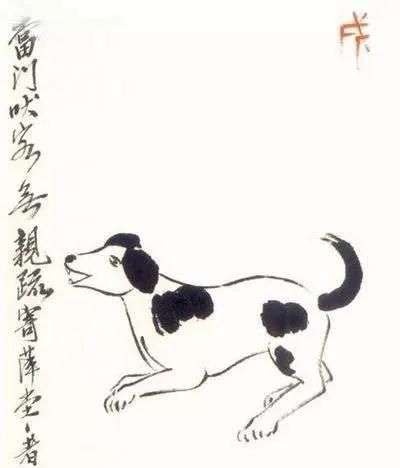 戌
當門吠客無親疏寄萍堂上者